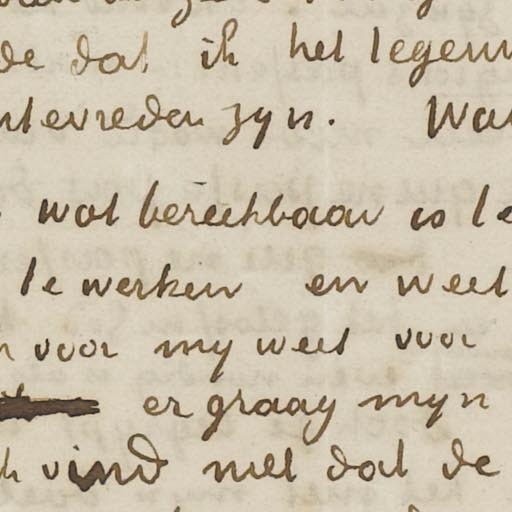 de dat ik het tegenw
ntevreden zyn. Wa
wat bereikbaar is te
te werken en weet
voor my weet voor
er graag myn
ik vind niet dat de